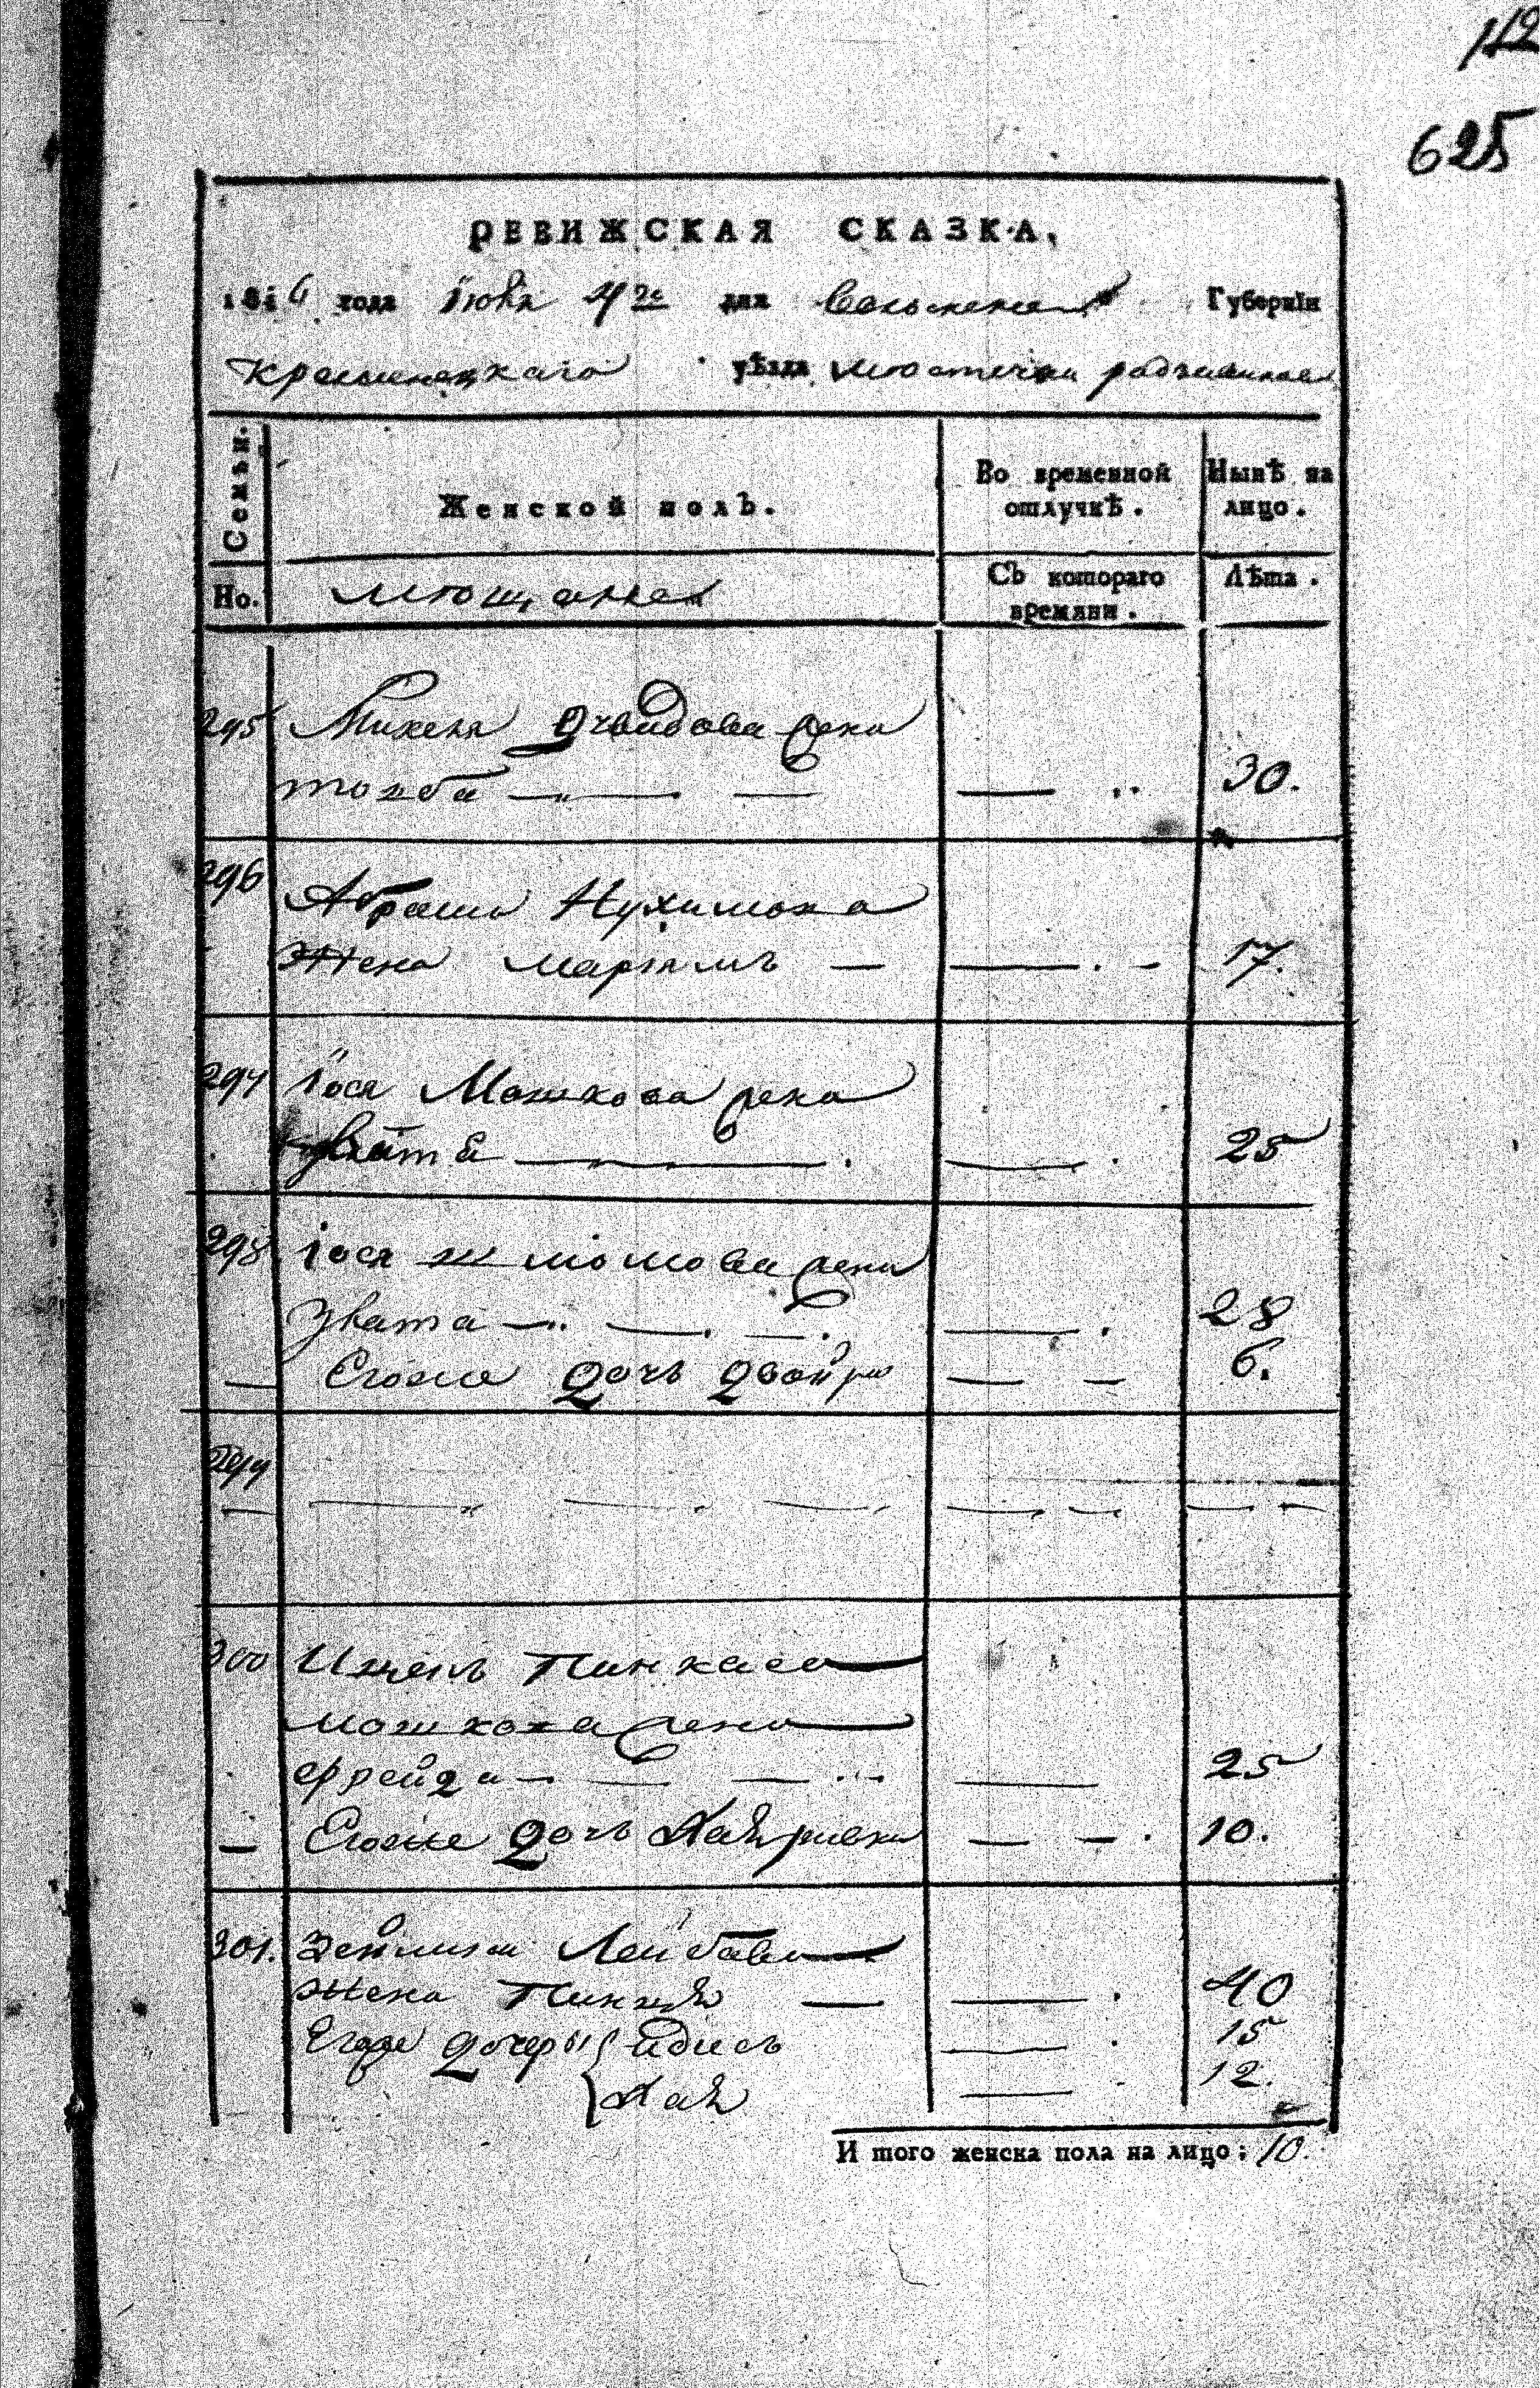 112
625
РЕВИЖСКАЯ СКАЗКА,
1816 года Июня 4го дня Волынской Губерніи
Кременецкаго уѣзда мюстечка радзивилов
Семьи.
Женской полъ.
Во временной отлучкѣ.
Нынѣ на лицо.
Но.
мющанка
Съ котораго времяни.
Лѣта.
295 Михеля Дувидова жена
товба 30.
296 Абрама Нухимова
Жена марямъ 17.
297 Іося Мошкова жена
25
298 Іося шмомова жена
Злата 28
Егоже дочь двойра 6.
299
300 Пинкаса
мошкова жена
фрейда 25
Егоже дочь Хаяривка 10.
301. Зейлика Лейбова
жена 40
Егоже дочеры идись 15
Хая 12.
И того женска пола на лицо: 10.